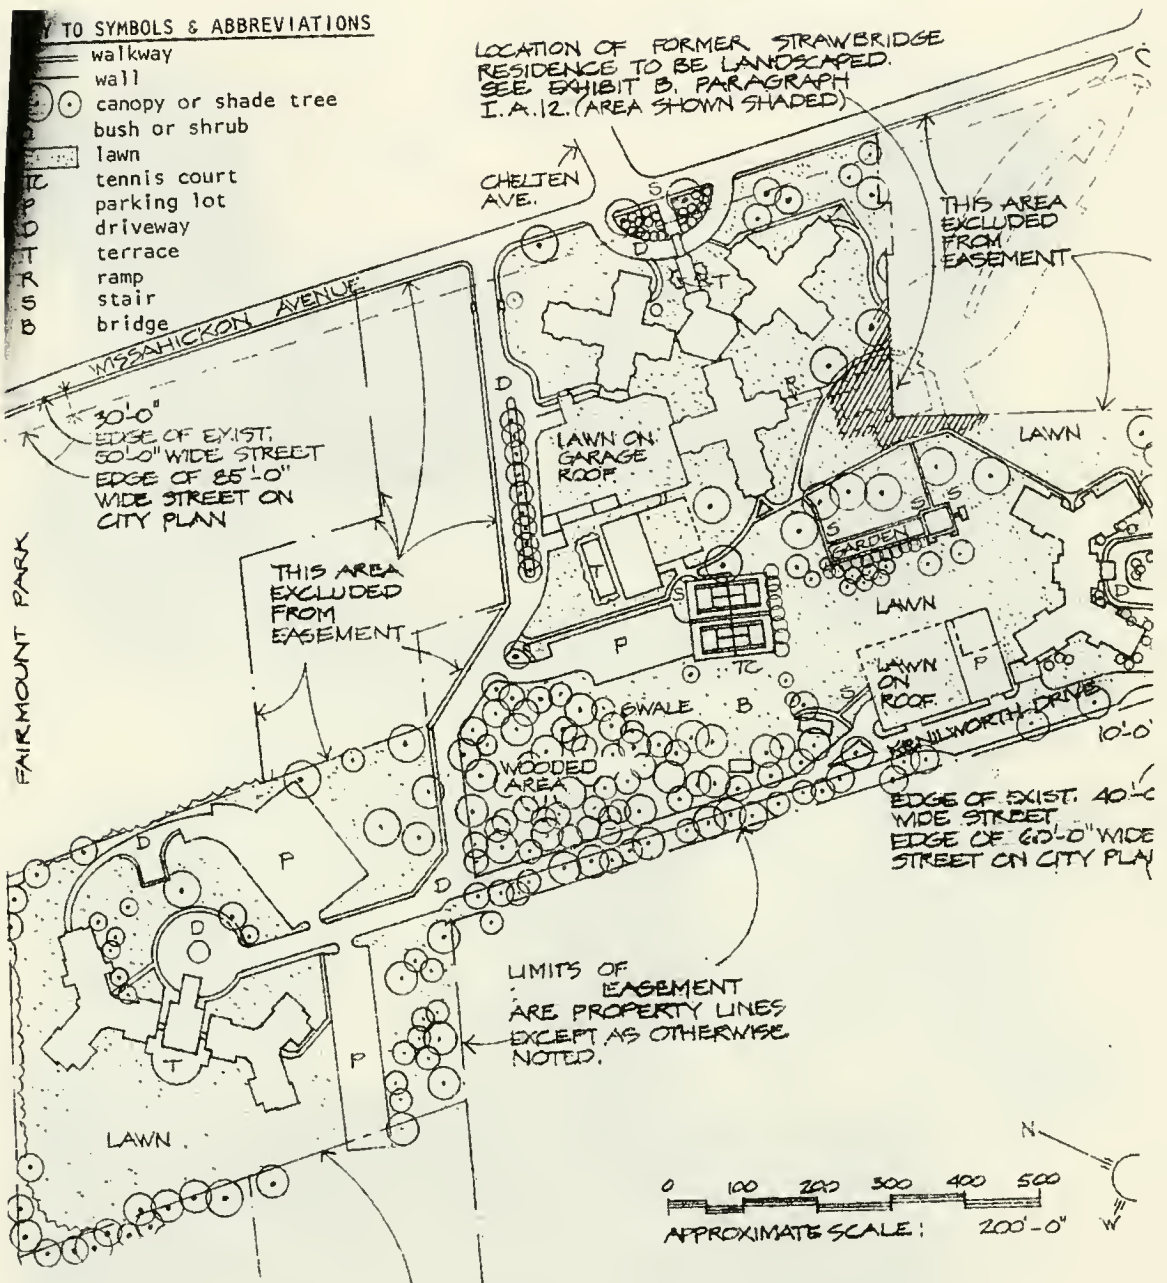 Y TO SYMBOLS & ABBREVIATIONS
walkway
wall
canopy or shade tree
bush or shrub
lawn
TC tennis court
P parking lot
D driveway
T terrace
R ramp
S stair
B bridge
LOCATION OF FORMER STRAWBRIDGE
RESIDENCE TO BE LANDSCAPED.
SEE EXHIBIT B, PARAGRAPH
I.A.12. (AREA SHOWN SHADED)
CHELTEN
AVE.
THIS AREA
EXCLUDED
FROM
EASEMENT
WISSAHICKON AVENUE
30'-0"
EDGE OF EXIST.
50'-0" WIDE STREET
EDGE OF 85'-0"
WIDE STREET ON
CITY PLAN
FAIRMOUNT PARK
S
D
R T
D
R
LAWN ON
GARAGE
ROOF
LAWN
S
S
S
GARDEN
THIS AREA
EXCLUDED
FROM
EASEMENT
T
S
LAWN
D
P
TC
LAWN
ON
ROOF
P
S
SWALE
B
KENILWORTH DRIVE
10'-0"
WOODED
AREA
EDGE OF EXIST. 40'-0
WIDE STREET
EDGE OF 60'-0" WIDE
STREET ON CITY PLA
D
P
D
D
LIMITS OF
EASEMENT
ARE PROPERTY LINES
EXCEPT AS OTHERWISE
NOTED.
T
P
LAWN
N
W
0 100 200 300 400 500
APPROXIMATE SCALE: 200'-0"